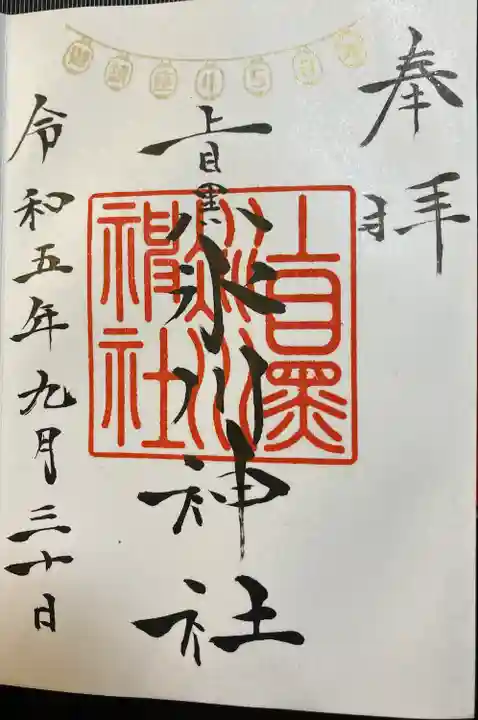 奉拝
上目黒氷川神社
上目黒
氷川
神社
令和五年九月三十日